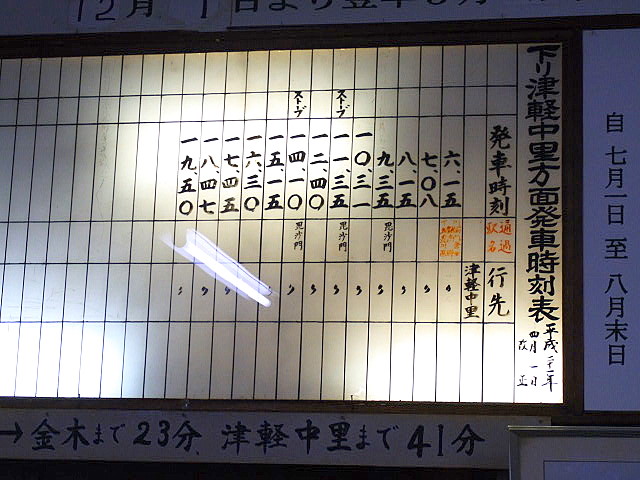 12月1日より翌年3月
下り津軽中里方面発車時刻表
平成二十一年
四月一日
改正
発車時刻
通過駅名
行先
六、一五
津軽中里
七、〇八
〃
八、一五
〃
九、三五
毘沙門
〃
一〇、三一
〃
ストーブ
一一、三五
毘沙門
〃
一二、四〇
〃
ストーブ
一四、一〇
毘沙門
〃
一五、一五
〃
一六、三〇
〃
一七、四五
〃
一八、四七
〃
一九、五〇
〃
自 七月一日 至 八月末日
→金木まで23分 津軽中里まで41分